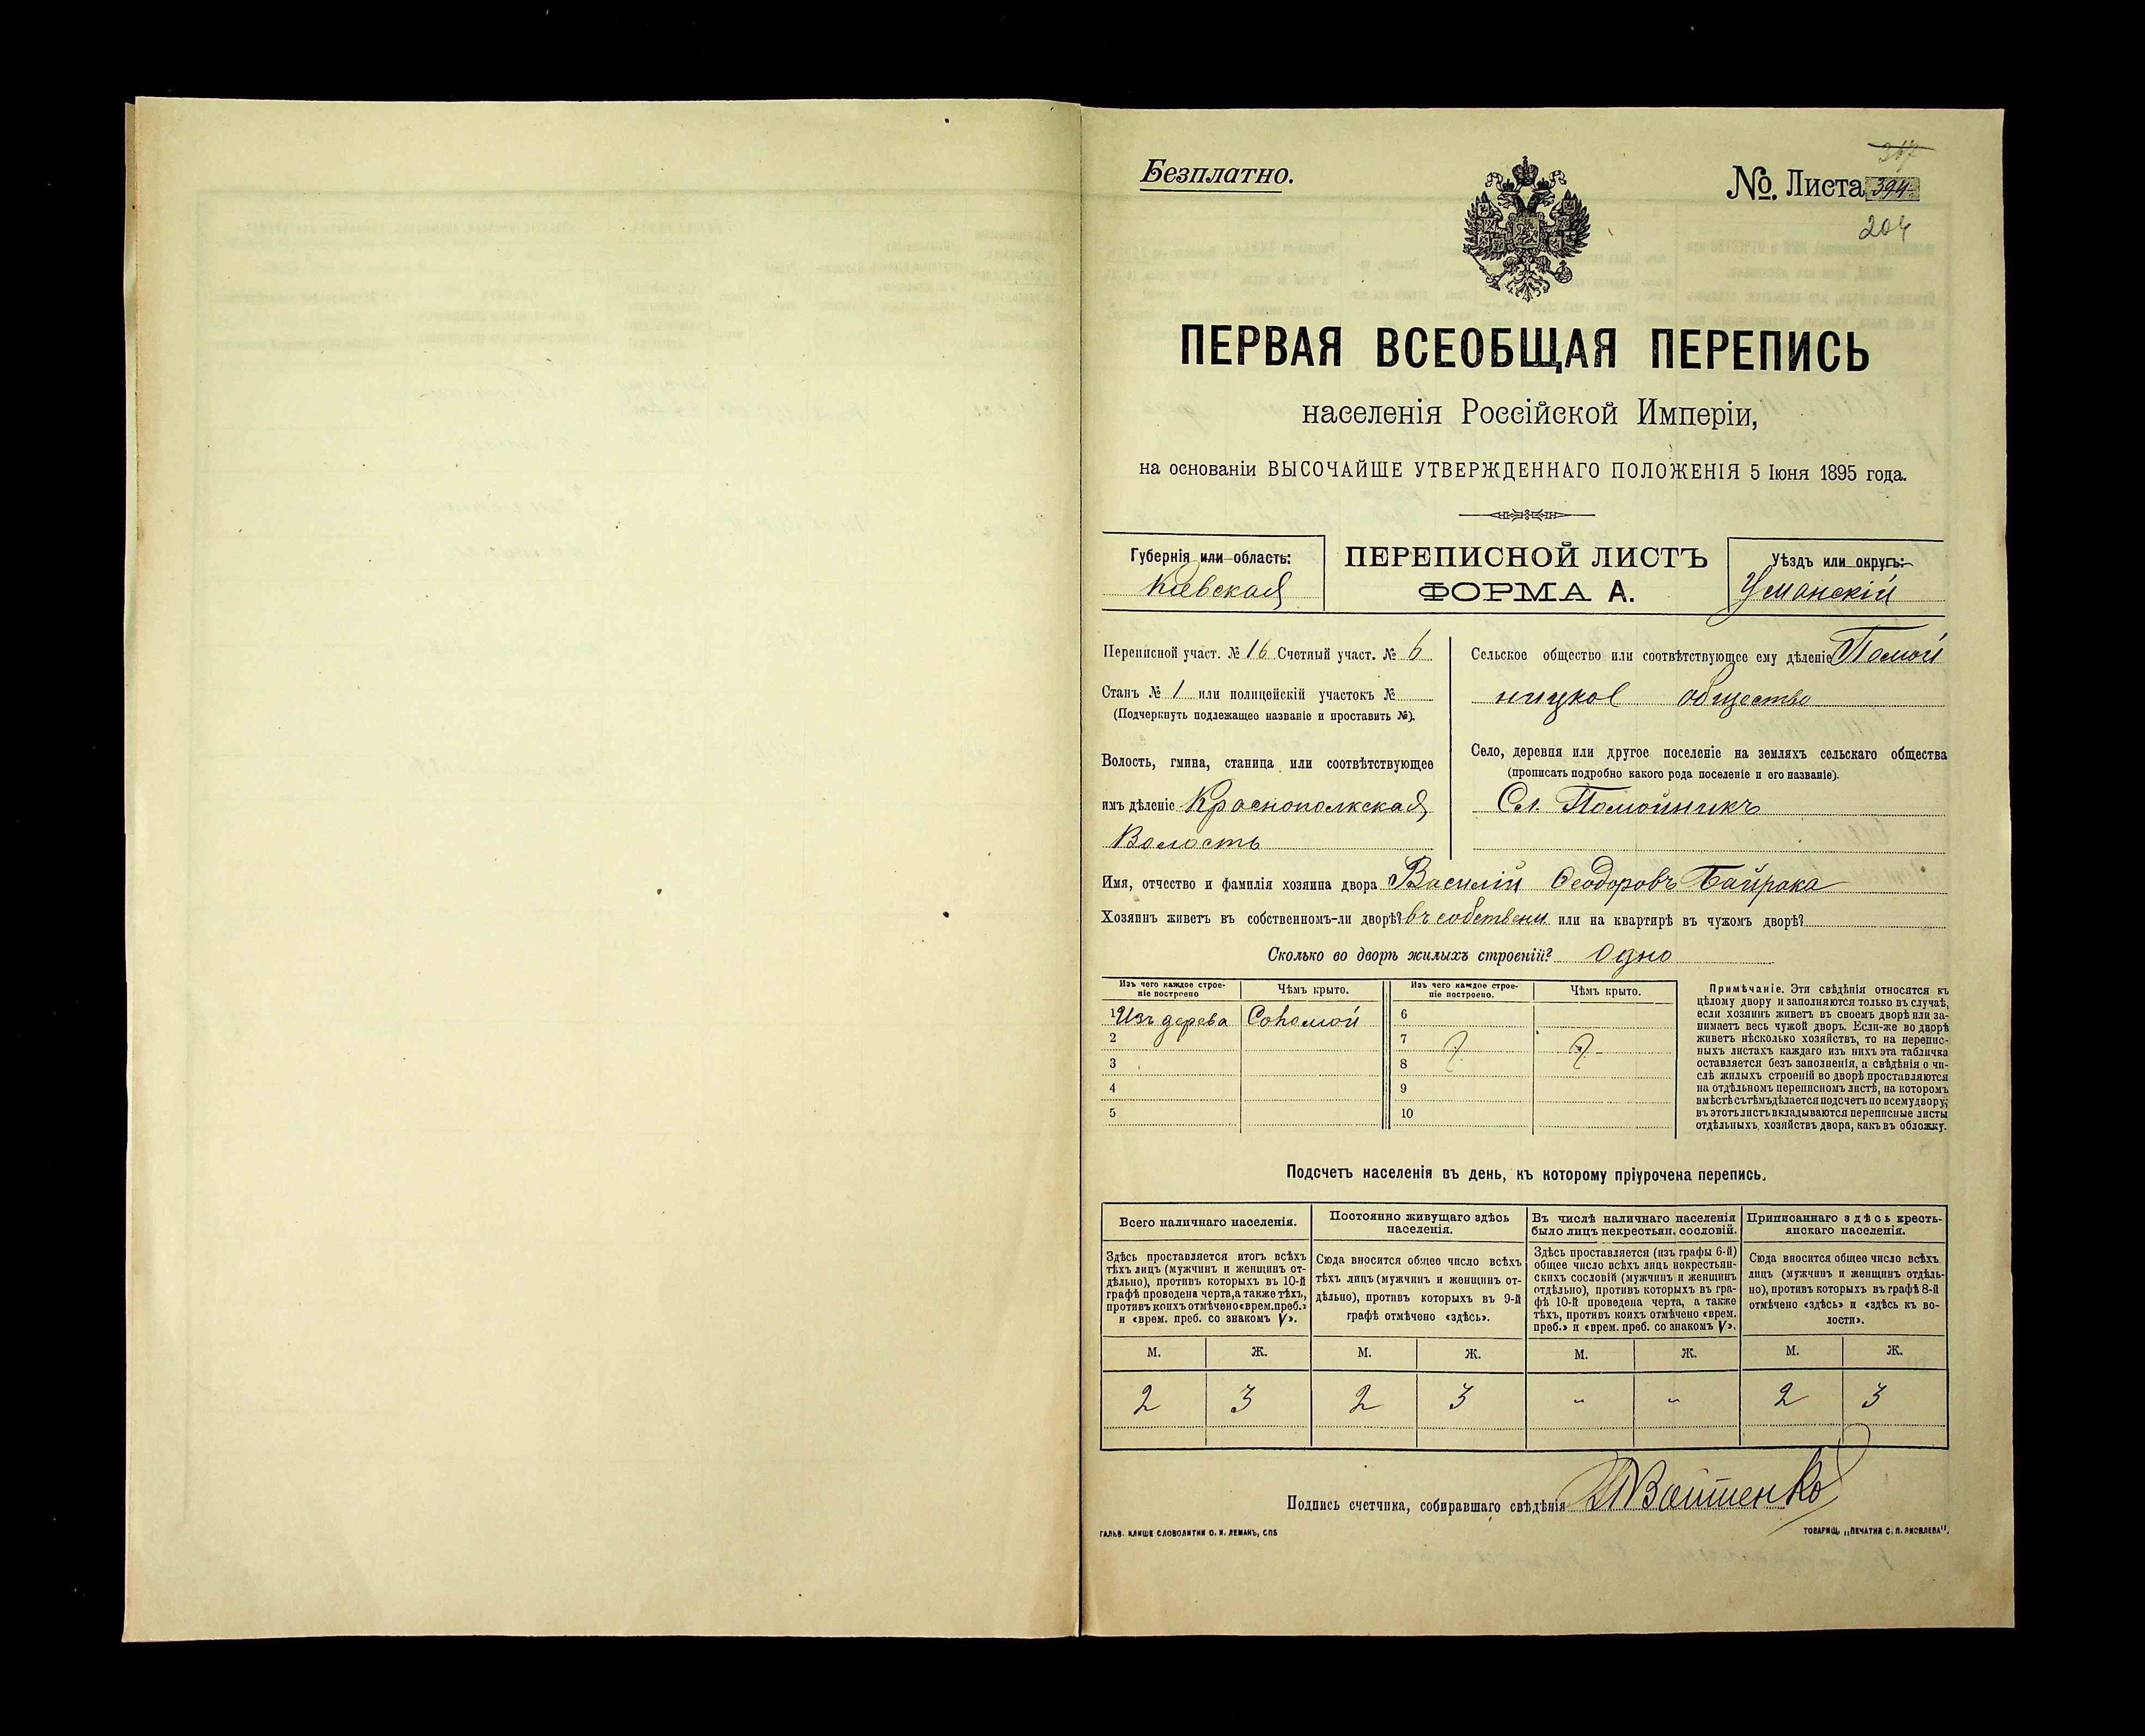 Безплатно.
№. Листа 394
204
ПЕРВАЯ ВСЕОБЩАЯ ПЕРЕПИСЬ
населенія Россійской Имперіи,
на основаніи ВЫСОЧАЙШЕ УТВЕРЖДЕННАГО ПОЛОЖЕНІЯ 5 Іюня 1895 года.
Губернія или область:
Кіевская
ПЕРЕПИСНОЙ ЛИСТЪ
ФОРМА А.
Уѣздъ или округъ:
Уманскій
Переписной участ. № 16 Счетный участ. № 6
Станъ № 1 или полицейскій участокъ №
(Подчеркнуть подлежащее названіе и проставить №).
Волость, гмина, станица или соотвѣтствующее
имъ дѣленіе Краснополкская
Волость
Сельское общество или соотвѣтствующее ему дѣленіе Помой
ницкое общество
Село, деревня или другое поселеніе на земляхъ сельскаго общества
(прописать подробно какого рода поселеніе и его названіе).
Сл. Помойникъ
Имя, отчество и фамилія хозяина двора Василій Ѳеодоровъ Байрака
Хозяинъ живетъ въ собственномъ-ли дворѣ? въ собствени или на квартирѣ въ чужомъ дворѣ?
Сколько во дворѣ жилыхъ строеній? Одно
Изъ чего каждое строе-
ніе построено
Чѣмъ крыто.
Изъ чего каждое строе-
ніе построено.
Чѣмъ крыто.
1 Изъ дерева Соломой
2
3
4
5
6
7
8
9
10
Примѣчаніе. Эти свѣдѣнія относятся къ
цѣлому двору и заполняются только въ случаѣ,
если хозяинъ живетъ въ своемъ дворѣ или за-
нимаетъ весь чужой дворъ. Если-же во дворѣ
живетъ нѣсколько хозяйствъ, то на перепис-
ныхъ листахъ каждаго изъ нихъ эта табличка
оставляется безъ заполненія, а свѣдѣнія о чи-
слѣ жилыхъ строеній во дворѣ проставляются
на отдѣльномъ переписномъ листѣ, на которомъ
вмѣстѣ съ тѣмъ дѣлается подсчетъ по всему двору;
въ этотъ листъ вкладываются переписные листы
отдѣльныхъ хозяйствъ двора, какъ въ обложку.
Подсчетъ населенія въ день, къ которому пріурочена перепись.
Всего наличнаго населенія.
Здѣсь проставляется итогъ всѣхъ
тѣхъ лицъ (мужчинъ и женщинъ от-
дѣльно), противъ которыхъ въ 10-й
графѣ проведена черта, а также тѣхъ,
противъ коихъ отмѣчено «врем. преб.»
и «врем. преб. со знакомъ V».
Постоянно живущаго здѣсь
населенія.
Сюда вносится общее число всѣхъ
тѣхъ лицъ (мужчинъ и женщинъ от-
дѣльно), противъ которыхъ въ 9-й
графѣ отмѣчено «здѣсь».
Въ числѣ наличнаго населенія
было лицъ некрестьян. сословій.
Здѣсь проставляется (изъ графы 6-й)
общее число всѣхъ лицъ некрестьян-
скихъ сословій (мужчинъ и женщинъ
отдѣльно), противъ которыхъ въ гра-
фѣ 10-й проведена черта, а также
тѣхъ, противъ коихъ отмѣчено «врем.
преб.» и «врем. преб. со знакомъ V».
Приписаннаго здѣсь кресть-
янскаго населенія.
Сюда вносится общее число всѣхъ
лицъ (мужчинъ и женщинъ отдѣль-
но), противъ которыхъ въ графѣ 8-й
отмѣчено «здѣсь» и «здѣсь къ во-
лости».
М. Ж. М. Ж. М. Ж. М. Ж.
2 3 2 3 " " 2 3
Подпись счетчика, собиравшаго свѣдѣнія
ГАЛЬВ. КЛИШЕ СЛОВОЛИТНИ О. И. ЛЕМАНЪ, СПБ
ТОВАРИЩ. „ПЕЧАТНЯ С. П. ЯКОВЛЕВА".